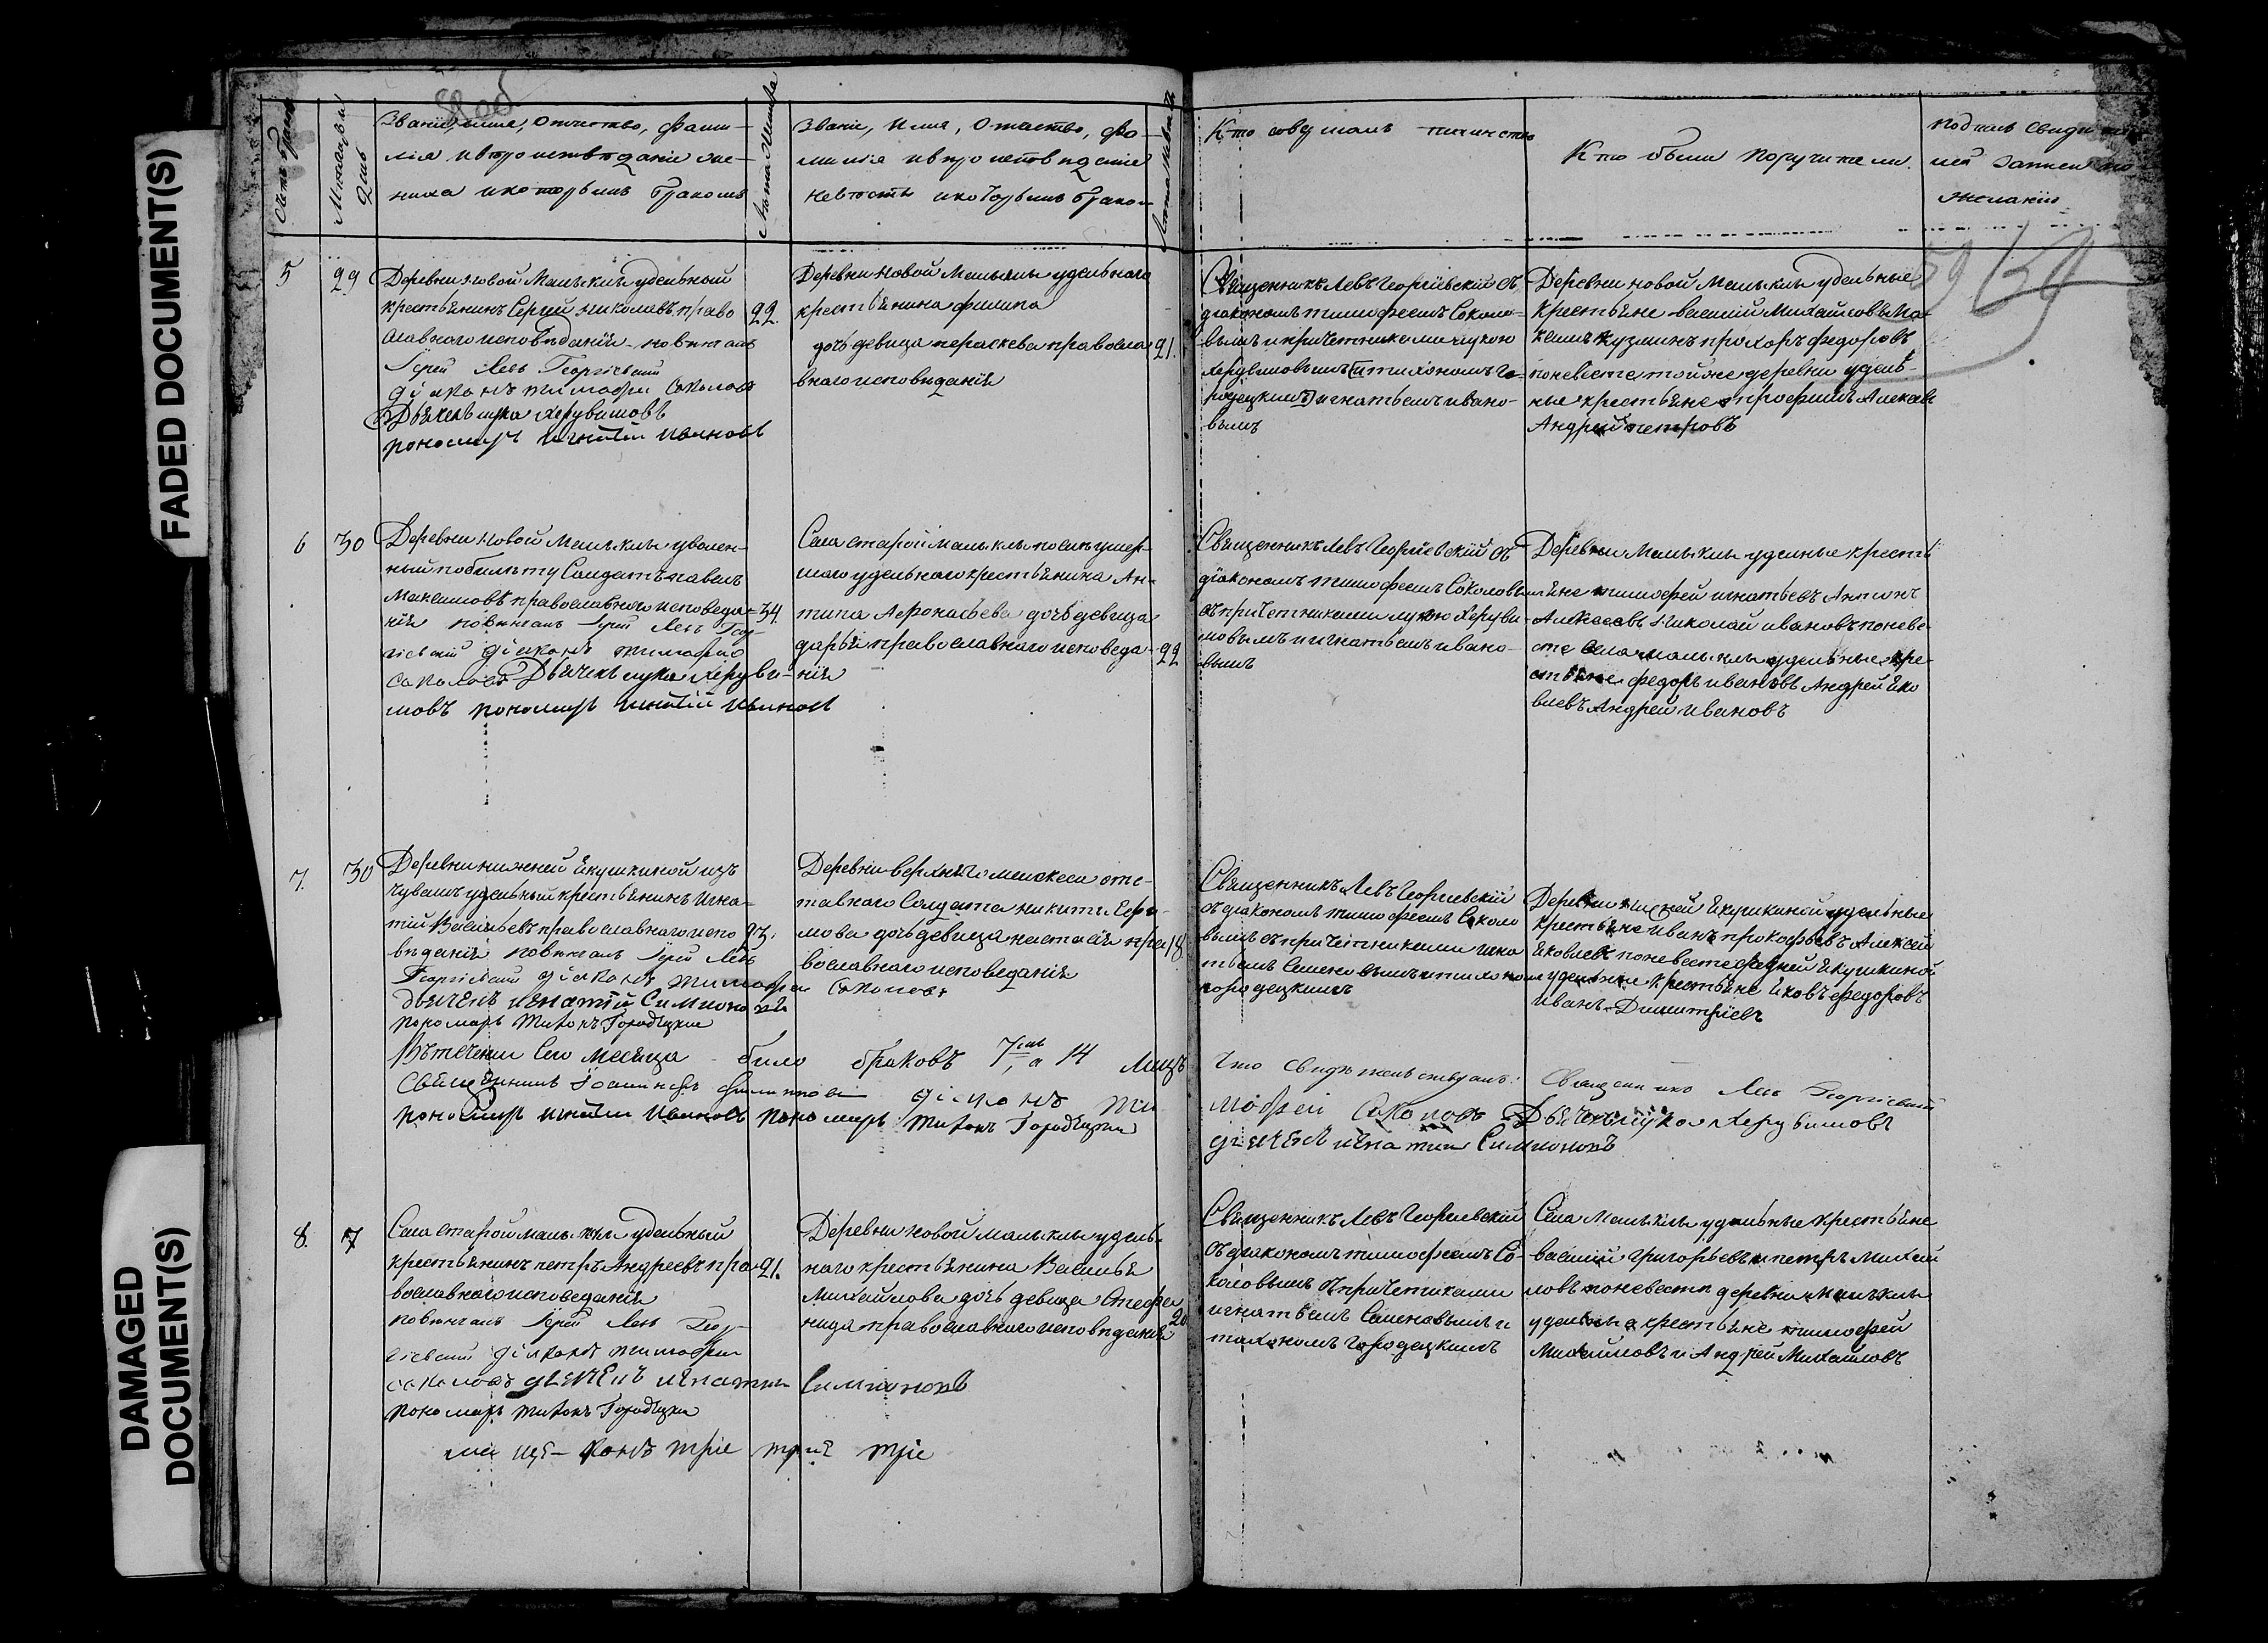 FADED DOCUMENT(S)
DAMAGED
DOCUMENT(S)
Месяцъ и
день
Званіе, имя, отчество, фами-
лія и вѣроисповѣданіе же-
ниха и которымъ бракомъ
Лѣта жениха
Званіе, имя, отчество, фа-
милія и вѣроисповѣданіе
невѣсты и которымъ брако
Кто совершалъ таинство
Кто были поручители.
5
29
Деревни новой Малыклы удельный
крестьянинъ Сергей николаевъ право
славнаго исповѣданія повѣнчалъ
Іерей Левъ Георгіевскій
діаконъ тимофей Соколовъ
Дьячекъ лука Херувимовъ
пономарь игнатій Ивановъ
22.
Деревни новой Малыклы удельнаго
крестьянина филипа
дочь девица параскева правосла-
внаго исповѣданія
21.
Священникъ Левъ Георгіевскій съ
діакономъ тимофеемъ Соколо-
вымъ и причетниками лукою
Херувимовымъ и тихономъ Го-
родецкимъ игнатьемъ ивано-
вымъ
Деревни новой Малыклы удельные
Крестьяне василій Михайловъ Ма-
ксимъ кузминъ прохоръ федоровъ
поневесте тойже деревни удель-
ные крестьяне трофимъ Алексѣев
Андрей петровъ
59
6
30
Деревни новой Малыклы уволен-
ный побилету Солдатъ павелъ
Максимовъ православнаго исповеда-
нія повѣнчалъ Іерей Левъ Геор-
гіевскій діаконъ тимофей
Соколовъ Дьячекъ лука Херуви-
мовъ пономарь игнатій Ивановъ
34.
Села старой малыклы послѣ умер-
шаго удельнаго крестьянина Ан-
типа Афонасьева дочь девица
дарья православнаго исповеда-
нія
22
Священникъ Левъ Георгіевскій съ
діакономъ тимофеемъ Соколовымъ
съ причетниками лукою Херуви-
мовымъ и игнатьемъ ивано-
вымъ
Деревни Малыклы уделные кресть
яне тимофей игнатьевъ Антонъ
Алексеевъ Николай ивановъ поневе-
сте села малыклы удельные кре-
стьяне федоръ ивановъ Андрей Яко
влевъ Андрей ивановъ
7.
30
Деревни нижней Якушкиной изъ
чувашъ удельный крестьянинъ игна-
тій Васильевъ православнаго испо
вѣданія повѣнчалъ Іерей Левъ
Георгіевскій діаконъ тимофей Соколовъ
дьячекъ игнатій Симионовъ
пономарь тихонъ Городецкій
23.
Деревни верхняго мелекеса отс-
тавного Солдата никиты Ефи-
мова дочь девица настасія пра-
вославнаго исповеданія
18
Священникъ Левъ Георгіевскій
съ діакономъ тимофеемъ Соколо
вымъ съ причетниками игна
тьемъ Семеновымъ и тихоном
городецкимъ
Деревни нижней Якушкиной удельные
крестьяне иванъ прокофьевъ Алексей
Яковлевъ поневесте средней Якушкиной
удельные крестьяне Яковъ федоровъ
иванъ Димитріевъ
Въ теченіи сего месяца было браковъ 7мь, а 14 лицъ что свидѣтельствуемъ: Священникъ Левъ Георгіевскій
Священникъ Іоаннъ діаконъ Ти
мофей Соколовъ Дьячекъ лука Херувимовъ
пономарь игнатій Ивановъ пономарь тихонъ Городецкій
дьячекъ игнатій Симионовъ
8.
7
Села старой малыклы удельный
крестьянинъ петръ Андреевъ пра-
вославнаго исповеданія
повѣнчалъ Іерей Левъ Геор-
гіевскій діаконъ тимофей
соколовъ дьячекъ игнатій Симионовъ
пономарь тихонъ Городецкій
21.
Деревни новой малыклы удель-
наго крестьянина Василья
Михайлова дочь девица Стефа
нида православнаго исповѣданія
20
Священникъ Левъ Георгіевскій
съ діакономъ тимофеемъ Со-
коловымъ съ причетниками
игнатьемъ Семеновымъ и
тихономъ городецкимъ
Села Малыклы удельные крестьяне
василій григорьевъ и петръ Михай
ловъ поневестѣ деревни малыклы
удельные крестьяне тимофей
Михайловъ и Андрей Михайловъ